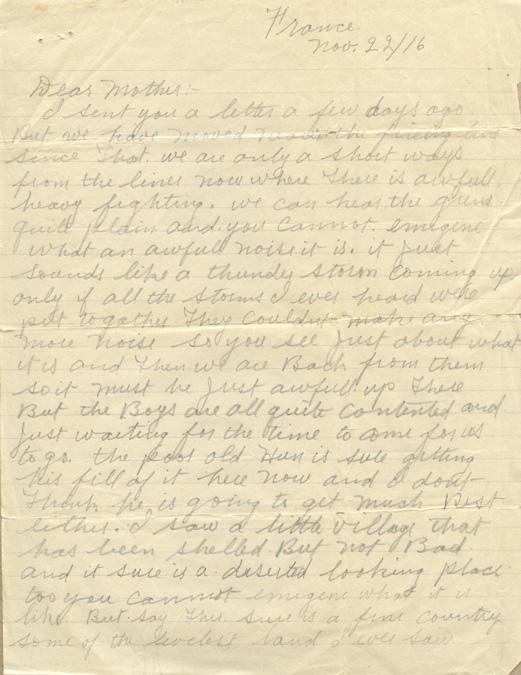 France.
Nov. 22/16
Dear Mother:-
I sent you a letter a few days ago
But we have moved the firing line
since That. we are only a short ways
from the lines now where There is awfull
heavy fighting. we can hear the guns
quite plain and you cannot emigene
what an awfull noise it is. it Just
sounds like a thunder storm coming up
only if all the storms I ever heard were
put togather They couldnt make any
more noise so you see Just about what
it is and Then we are Back from them
so it must be Just awfull up There
But the Boys are all quite contented and
Just waiting for the time to come for us
to go. the poor old Hun is sure getting
his fill of it here now and I dont
Think he is going to get much Rest
either. I saw a little village that
has been shelled But not Bad
and it sure is a deserted looking place
too you cannot emigene what it is
like But say This sure is a fine country
some of the land I ever saw